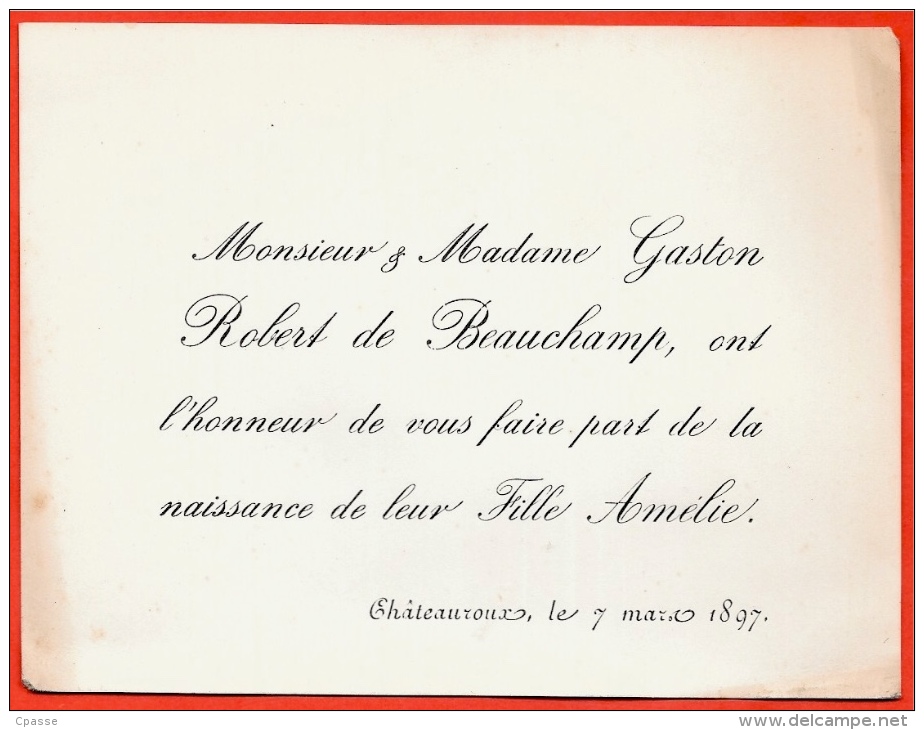 Monsieur & Madame Gaston
Robert de Beauchamp, ont
l'honneur de vous faire part de la
naissance de leur Fille Amélie.
Châteauroux, le 7 mars 1897.
Cpasse
www.delcampe.net